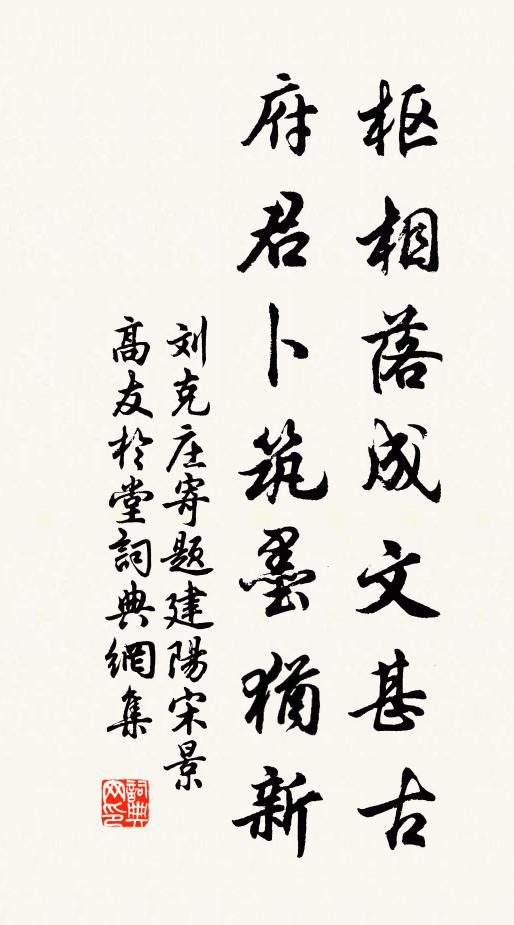 枢相落成文甚古
府君卜筑墨犹新
刘克庄寄题建陽宋景
高友於堂詞典網集
詞典
网印